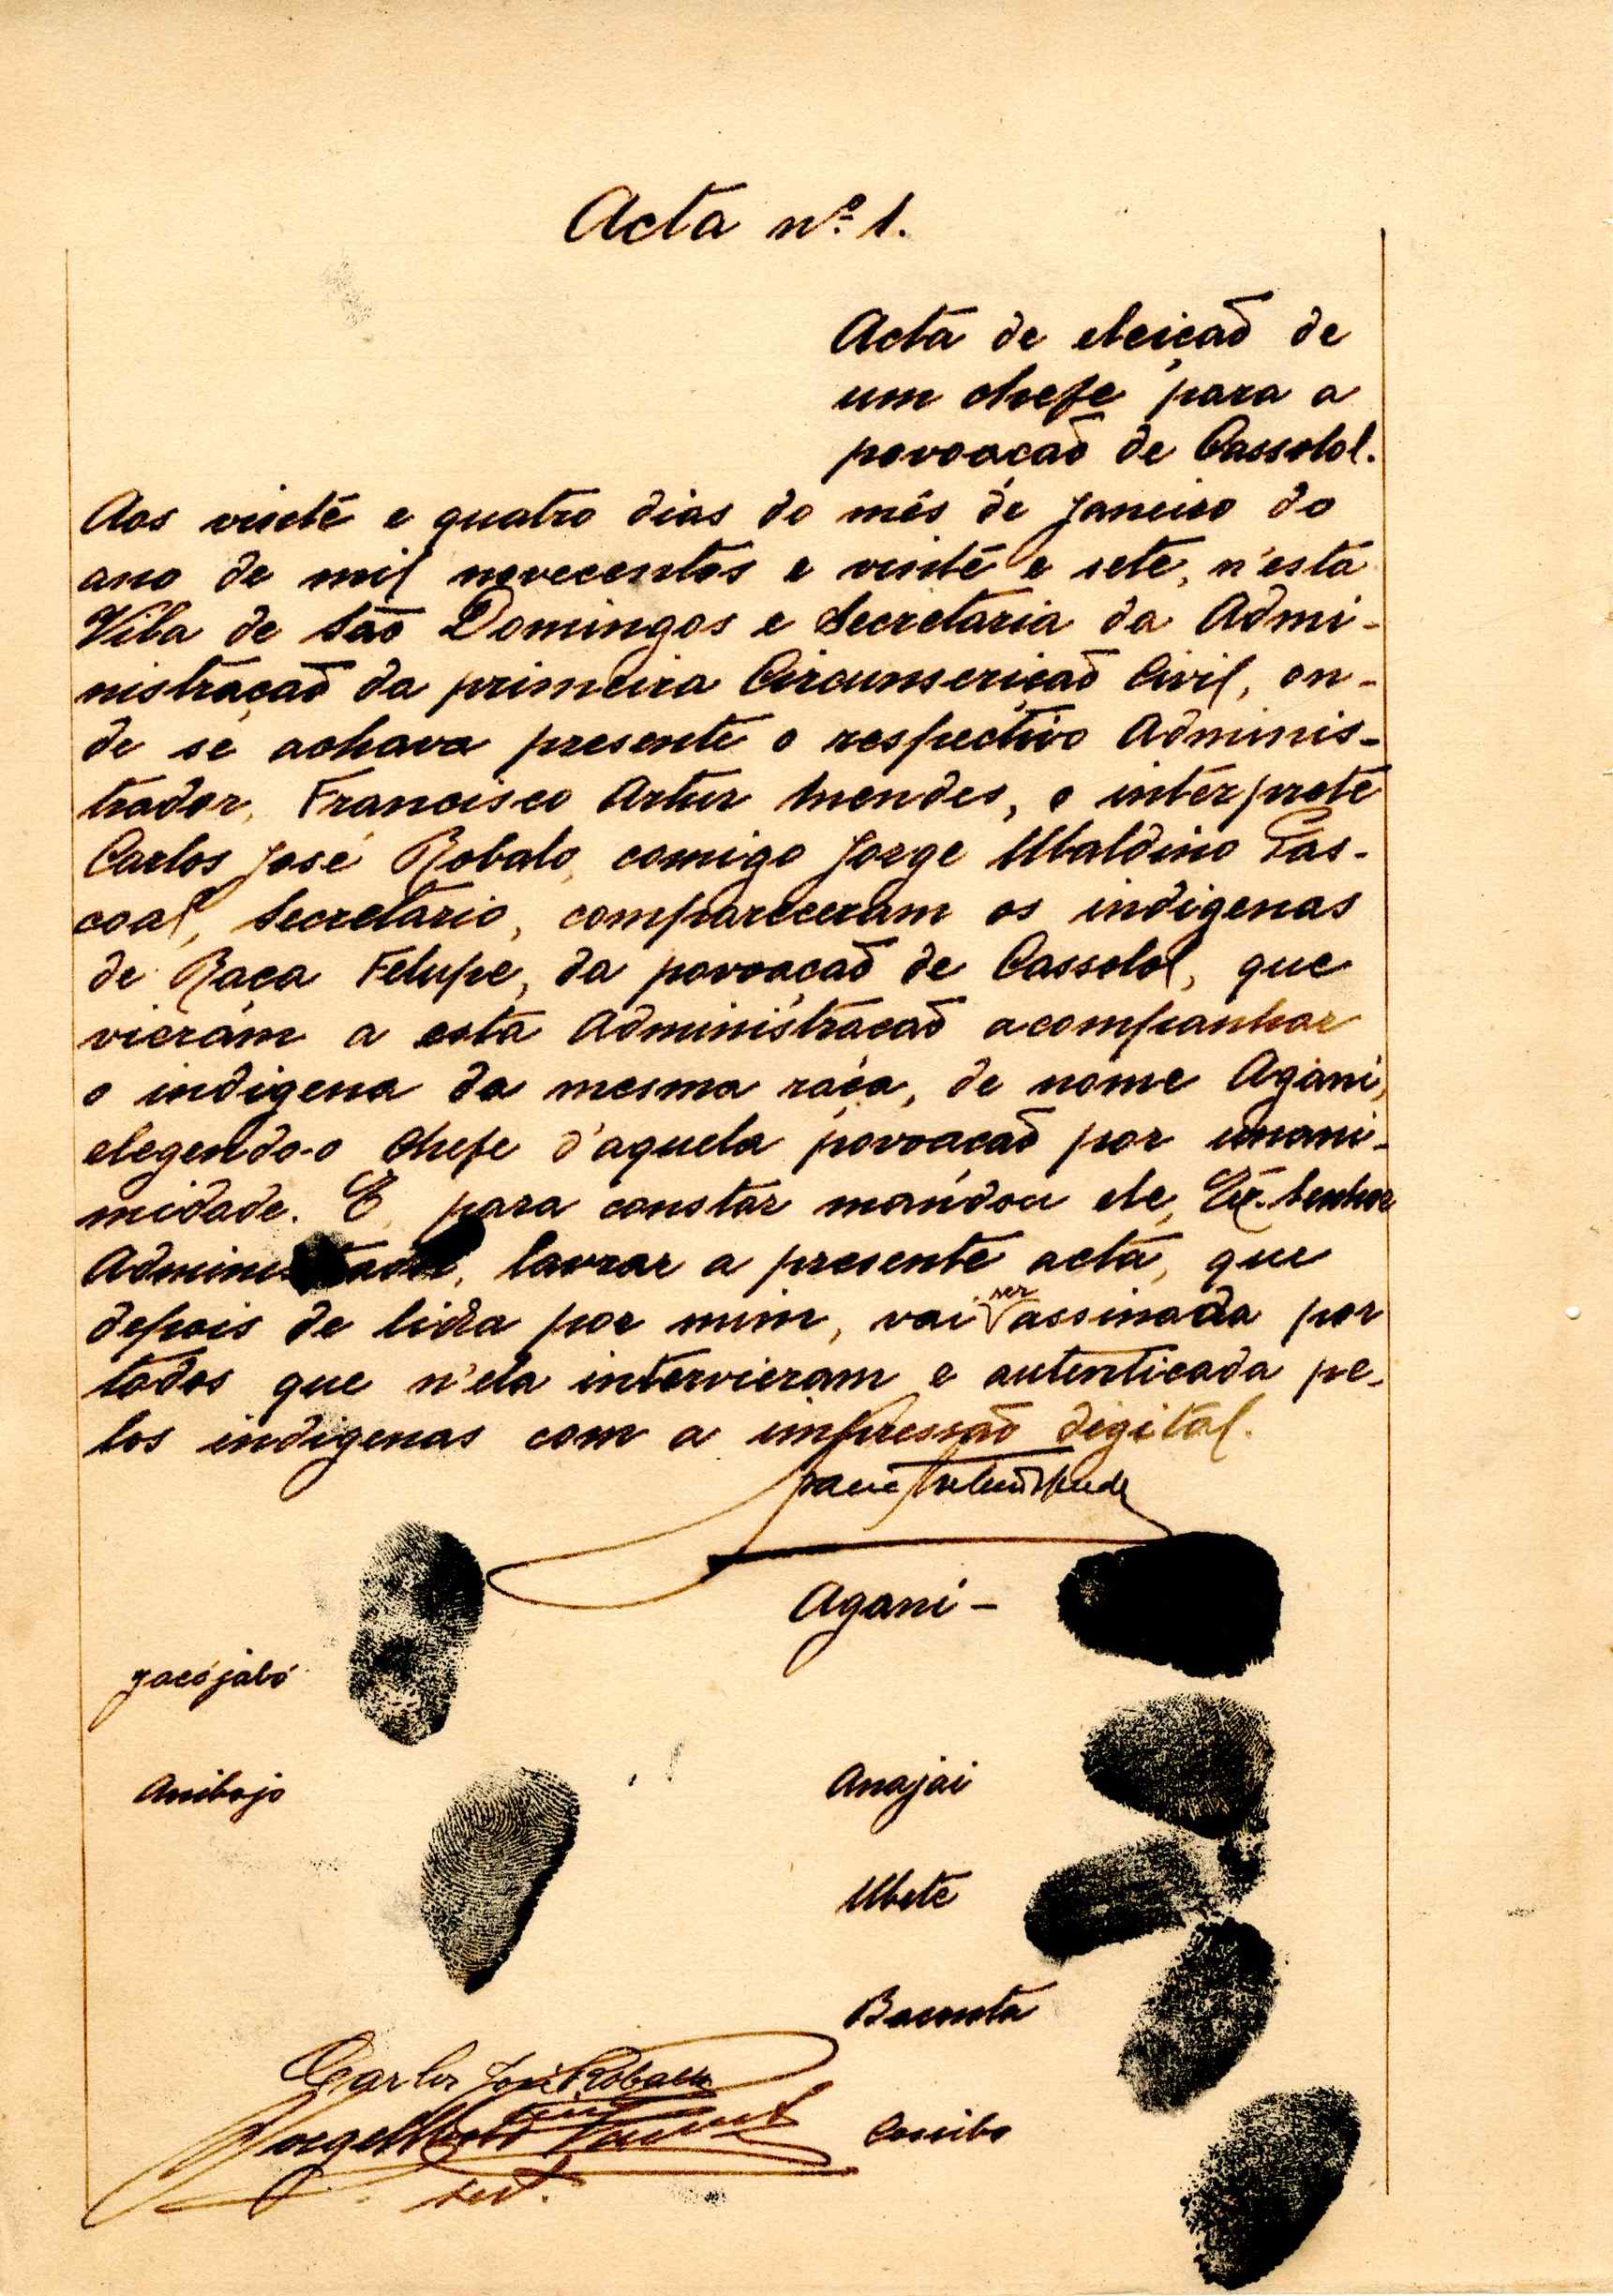 Acta nº 1.
Acta de eleição de
um chefe para a
povoação de Cassolol.
Aos vinte e quatro dias do mês de Janeiro do
ano de mil novecentos e vinte e sete, n'esta
Vila de São Domingos e Secretaria da Admi-
nistração da primeira Circunscrição Civil, on-
de se achava presente o respectivo Adminis-
trador, Francisco Artur Mendes, o interprete
Carlos José Robalo, comigo Jorge Ubaldino Pas-
coal, Secretario, compareceram os indigenas
de Raça Felupe, da povoação de Cassolol, que
vieram a esta Administração acompanhar
o indigena da mesma raça, de nome Agani,
elegendo-o Chefe d'aquela povoação por unani-
midade. E, para constar mandou ele, Ex. Senhor
Administrador, lavrar a presente acta, que
depois de lida por mim, vai ser assinada por
todos que n'ela intervieram e autenticada pe-
los indigenas com a impressão digital.
Agani -
Jacójabó
Anajai
Anibojo
Ubete
Carlos José Robalo